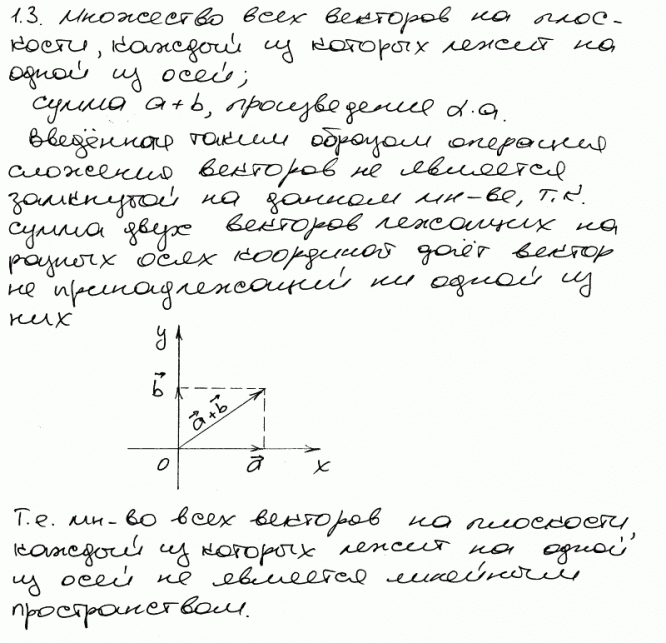 1.3. Множество всех векторов на плос-
кости, каждый из которых лежит на
одной из осей;
сумма a+b, произведение α·a.
Введённая таким образом операция
сложения векторов не является
замкнутой на данном мн-ве, т.к.
сумма двух векторов лежащих на
разных осях координат даёт вектор
не принадлежащий ни одной из
них
y
b
a+b
0
a
x
Т.е. мн-во всех векторов на плоскости,
каждый из которых лежит на одной
из осей не является линейным
пространством.